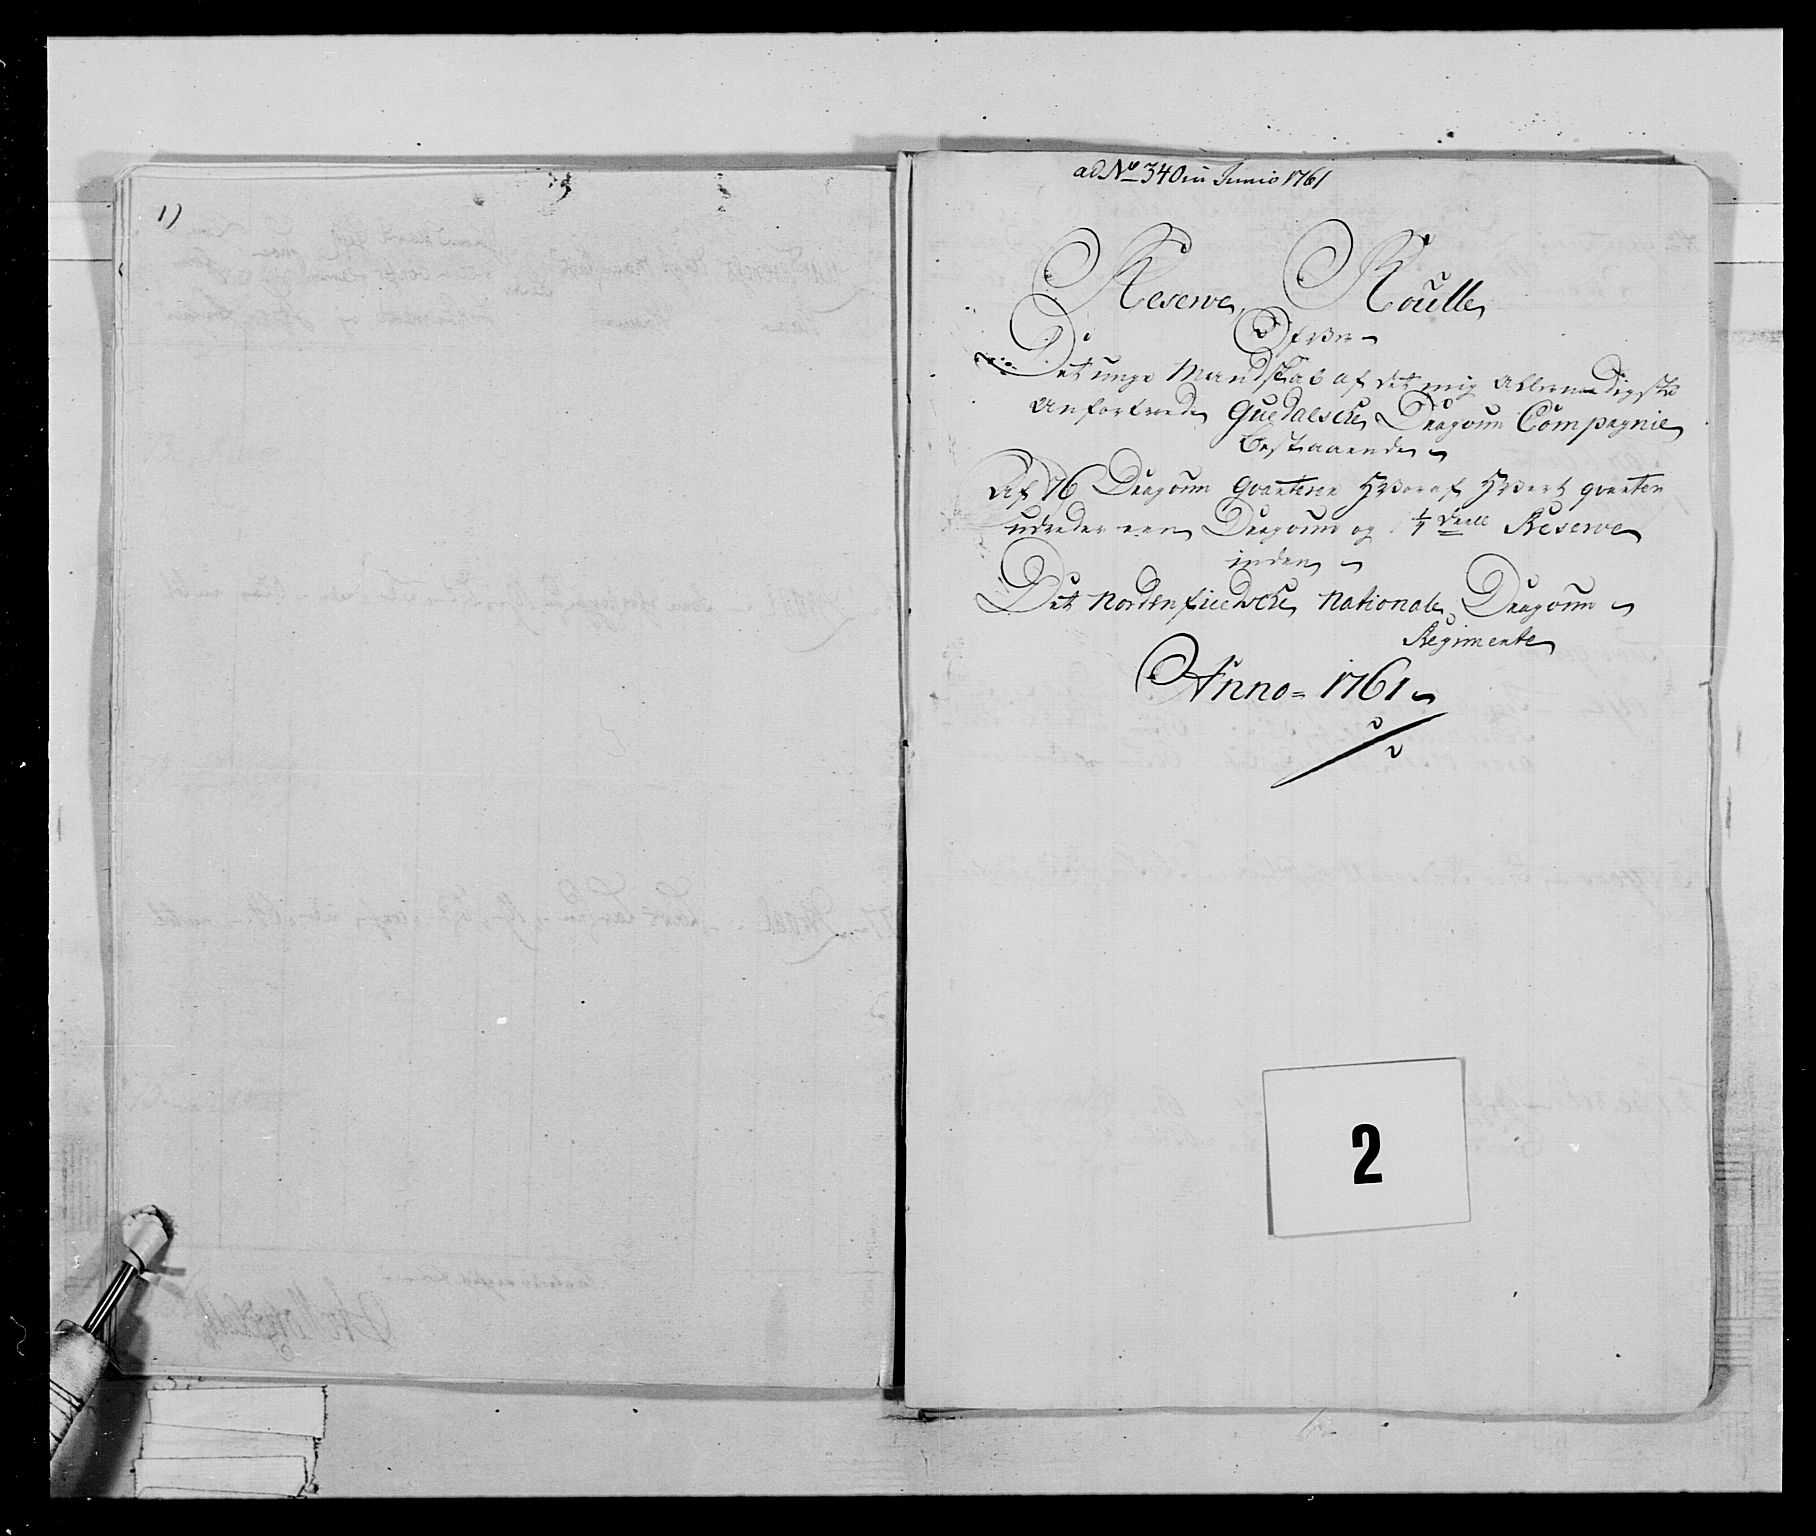 1)
ad No 340 in Junio 1761
Reserve Roulle
Ofver
Det unge Mandskab af det mig Allernaadigste
Anfortroede Guedalsche Dragoun Compagnie
bestaaende
Af 76 Dragoun Qvarterer Hvoraf Hvert qvarter
udreder een Dragoun og 1/4 Deell Reserve
inden
Det Nordenfieldsche Nationale Dragoun
Regimente
Anno = 1761
2